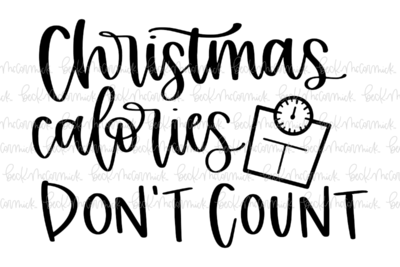 Christmas
calories
DON'T COUNT